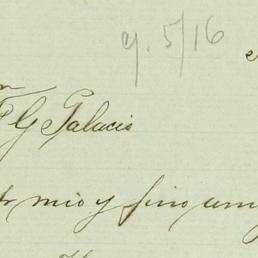 g. 5/16
F G Palacio
mio y fino amig